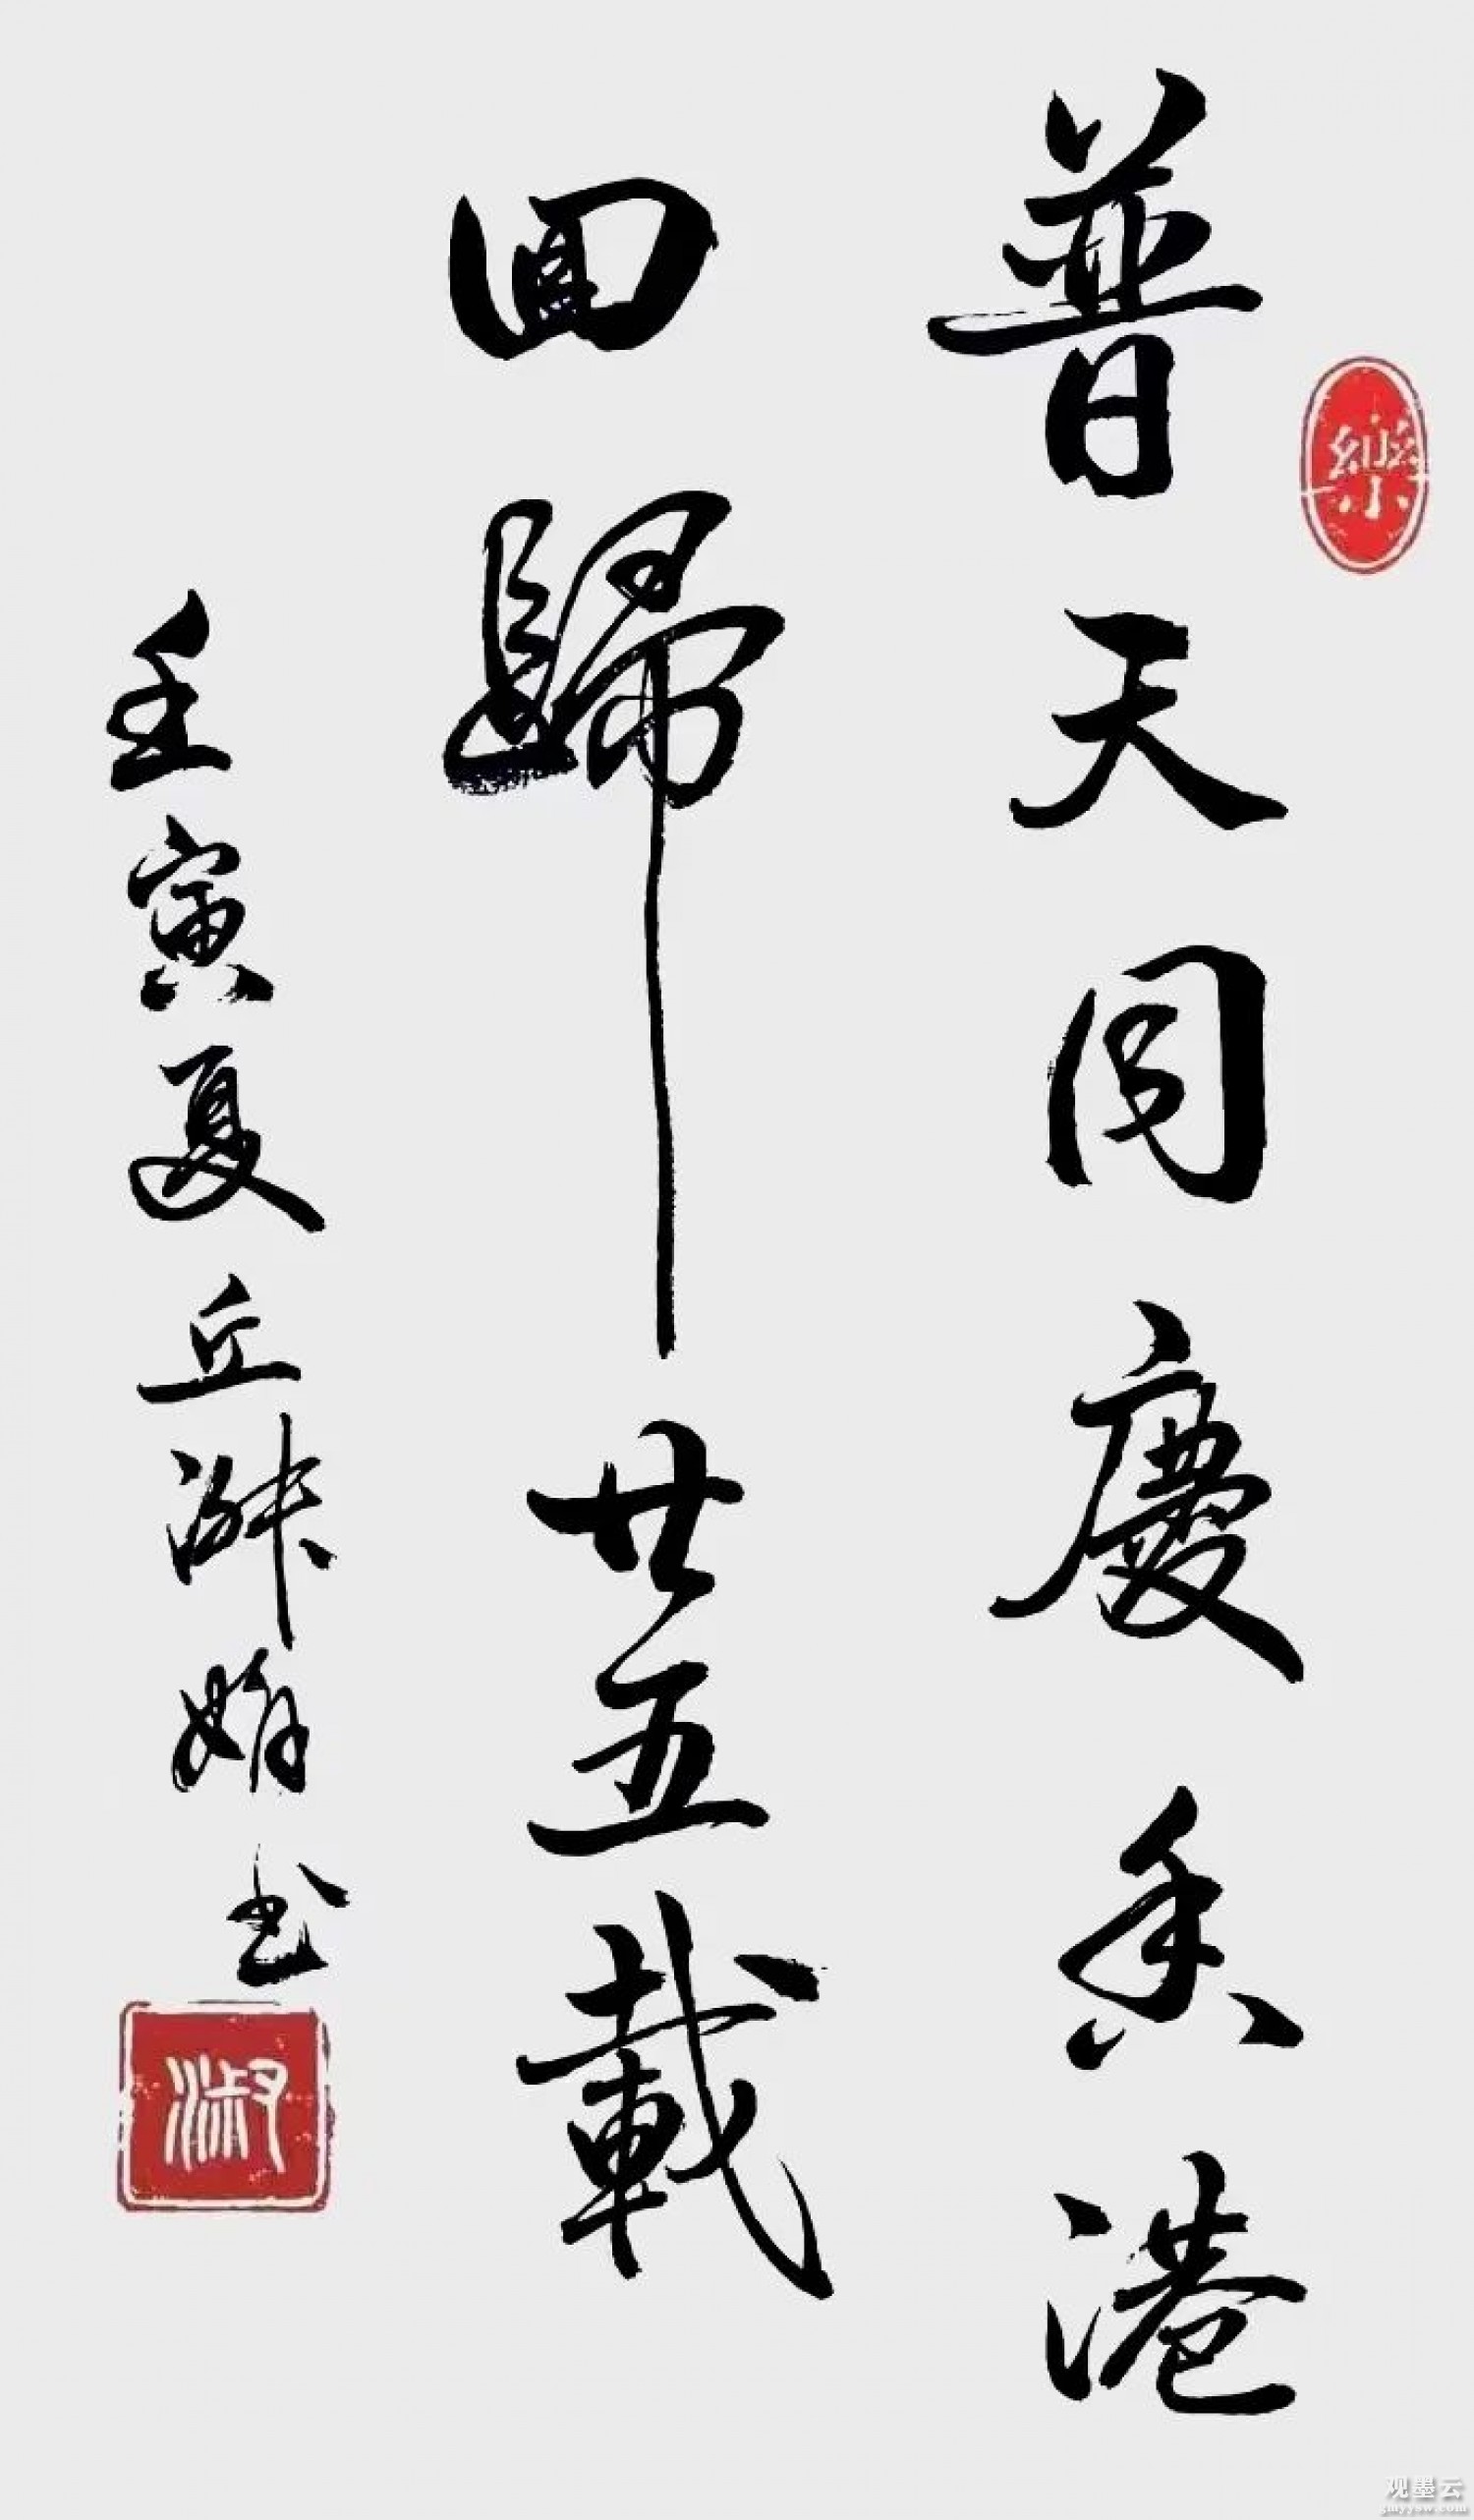 普天同慶香港
回歸廿五載
壬寅夏丘淑娟书
樂
淑
观墨云
gmyysw.com